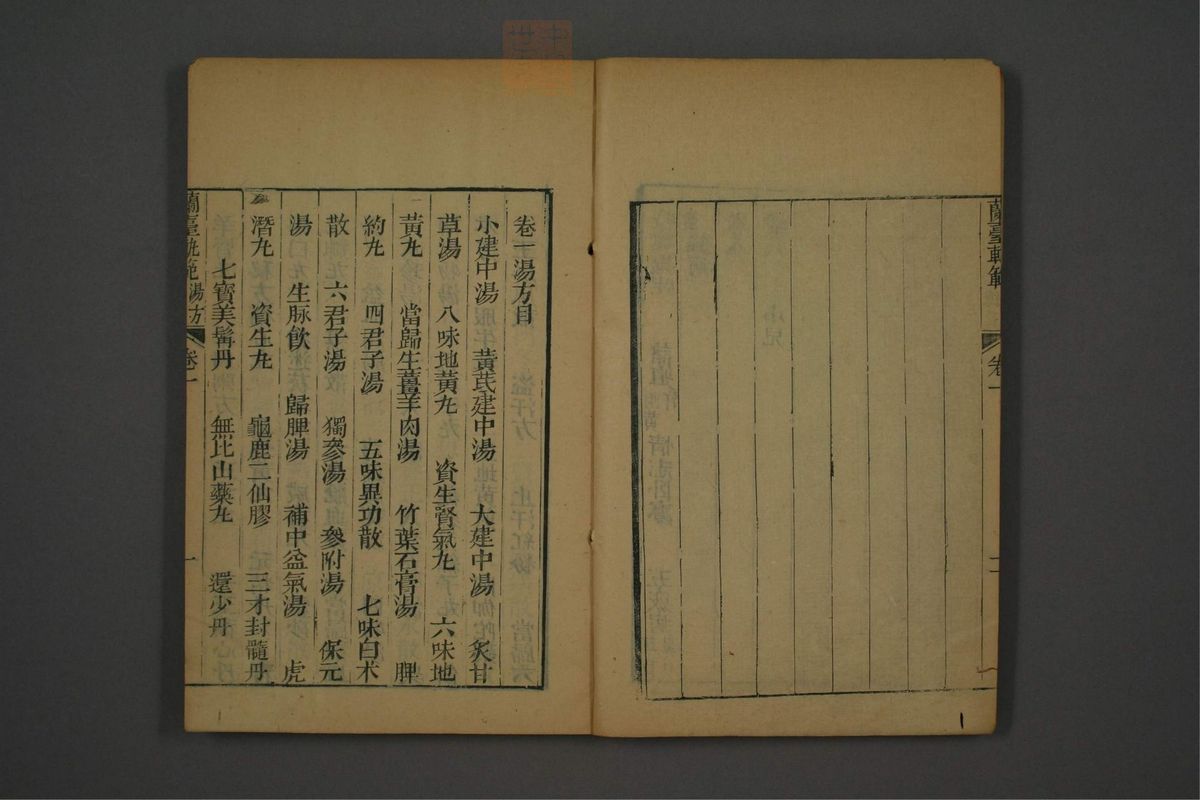 蘭臺軌範
卷一
卷一湯方目
小建中湯 黃芪建中湯 大建中湯 炙甘
草湯 八味地黃丸 資生腎氣丸 六味地
黃丸 當歸生薑羊肉湯 竹葉石膏湯 脾
約丸 四君子湯 五味異功散 七味白朮
散 六君子湯 獨參湯 參附湯 保元
湯 生脉飲 歸脾湯 補中益氣湯 虎
潛丸 資生丸 龜鹿二仙膠 三才封髓丹
七寶美髯丹 無比山藥丸 還少丹
蘭臺軌範湯方 卷一 一